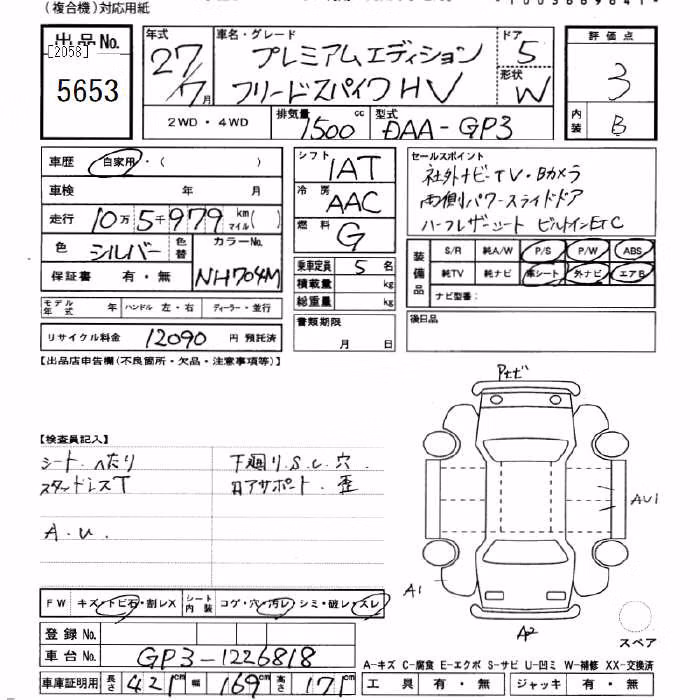 (複合機)対応用紙
出品No.
[2058]
5653
年式 27/7月
車名・グレード プレミアムエディション
フリードスパイク HV
ドア 5
形状 W
評価点 3
内装 B
2WD・4WD
排気量 1500 cc
型式 DAA-GP3
車歴 自家用・( )
車検 年 月
走行 10万5千979 km マイル( )
色 シルバー 色替 カラーNo. NH704M
保証書 有・無
モデル年式 年 ハンドル 左・右 ディーラー・並行
リサイクル料金 12090 円 預託済
シフト IAT
冷房 AAC
燃料 G
乗車定員 5 名
積載量 kg
総重量 kg
書類期限
月 日
セールスポイント
社外ナビ-TV・Bカメラ
両側パワースライドドア
ハーフレザーシート ビルトインETC
装備品
S/R 純A/W P/S P/W ABS
純TV 純ナビ 革シート 外ナビ エアB
ナビ型番:
後日品
【出品店申告欄(不良箇所・欠品・注意事項等)】
【検査員記入】
シート へたり
スタッドレスT
A.U.
下廻り.S.C.穴.
コアサポート.歪
Pナビ
AU1
A1
A2
スペア
FW キズ・トビ石・割レX シート内装 コゲ・穴・汚レ・シミ・破レ・スレ
登録No.
車台No. GP3-1226818
車庫証明用 長さ 421cm 幅 169cm 高さ 171cm
A-キズ C-腐食 E-エクボ S-サビ U-凹ミ W-補修 XX-交換済
工具 有・無 ジャッキ 有・無